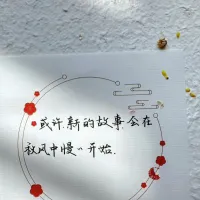 或许.新的故事.会在
夜风中慢〃开始.